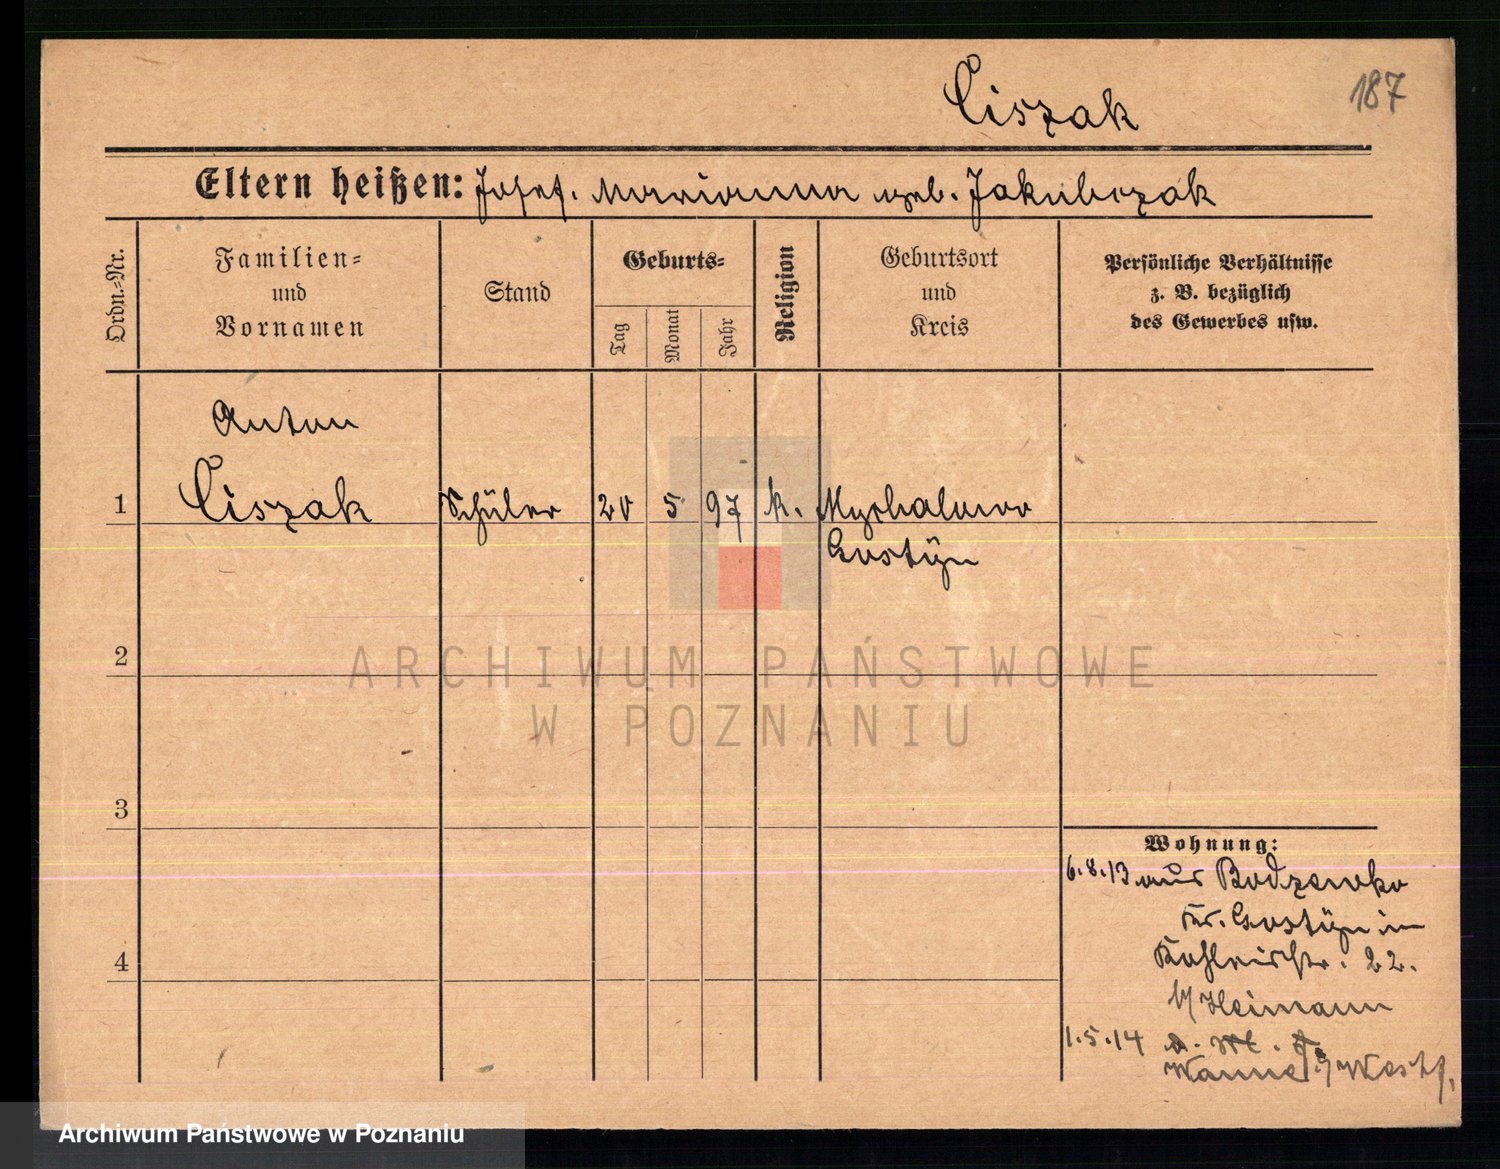 Ciszak
187
Eltern heißen: Josef. Marianna geb. Jakubczak
Ordn.-Nr.
Familien- und Vornamen
Stand
Geburts-
Tag
Monat
Jahr
Religion
Geburtsort und Kreis
Persönliche Verhältnisse
z. B. bezüglich
des Gewerbes usw.
Anton
1 Ciszak Schüler 20 5 97 k.
Gostyn
2
3
4
Wohnung:
6.8.13 aus Bodzewko
Kr. Gostyn in
22.
b/ Heimann
1.5.14
Wanne i/ Westf.
ARCHIWUM PAŃSTWOWE
W POZNANIU
Archiwum Państwowe w Poznaniu